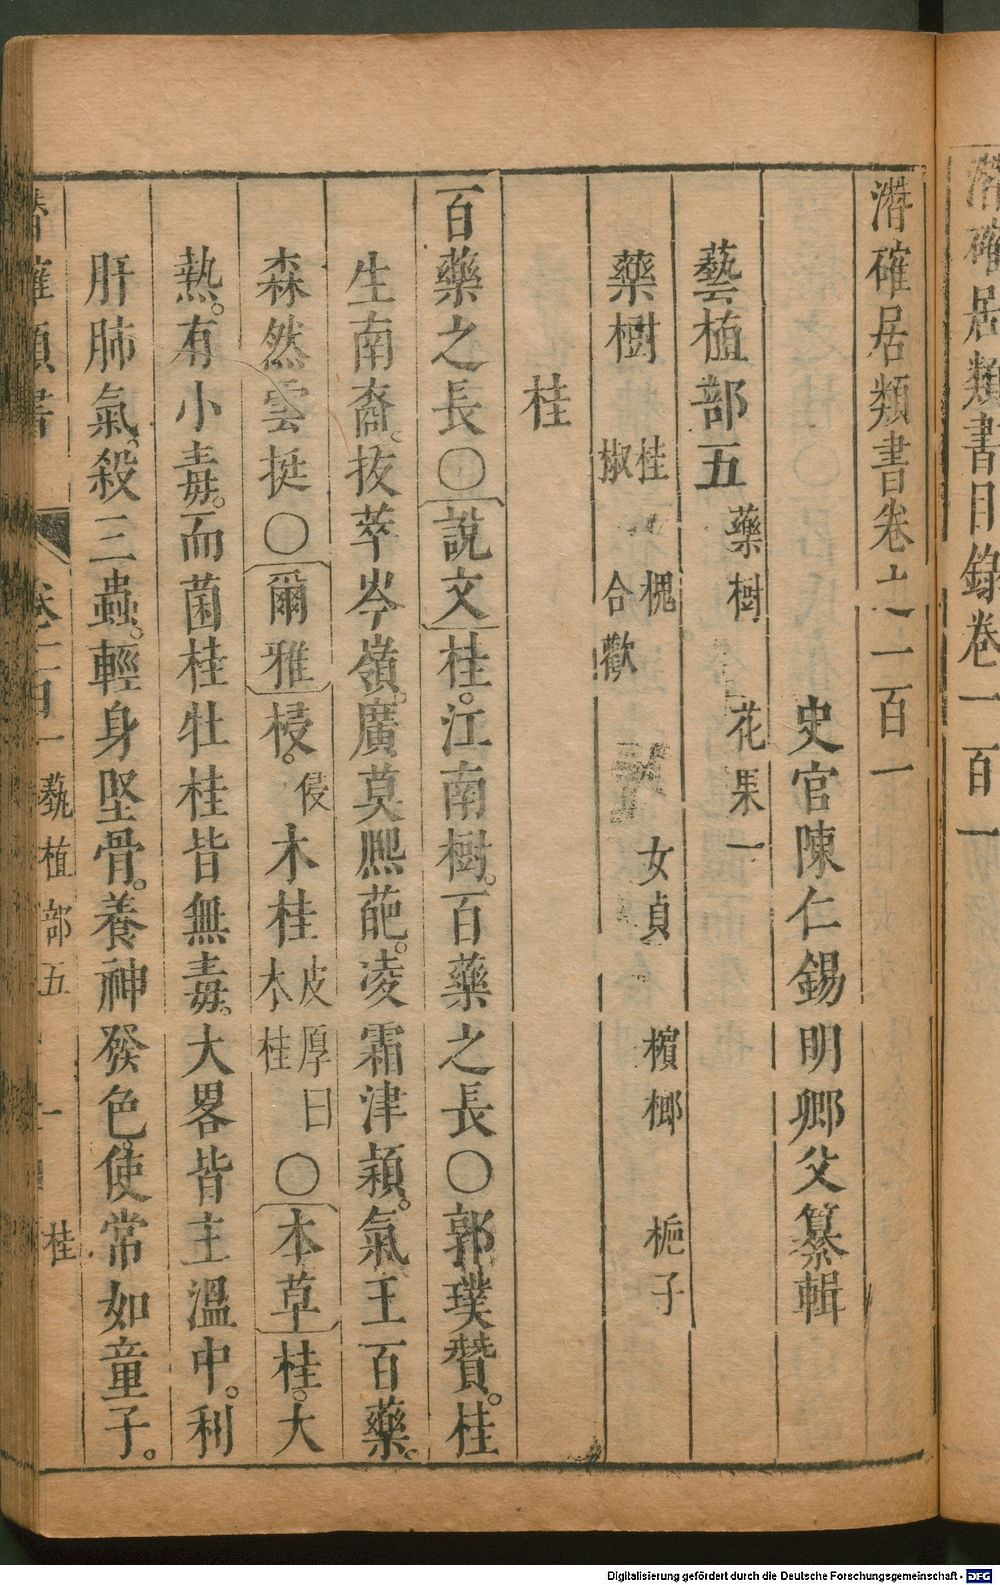 潛確居類書目錄卷一百一
潛確居類書卷之一百一
史官陳仁錫明卿父纂輯
藝植部五 藥樹 花果一
藥樹 桂 槐 女貞 檳榔 梔子
椒 合歡
桂
百藥之長〇說文桂。江南樹。百藥之長〇郭璞贊。桂
生南裔。拔萃岑嶺。廣莫熈葩。凌霜津穎。氣王百藥。
森然雲挺〇爾雅梫。侵木桂皮厚曰木桂〇本草桂。大
熱。有小毒。而菌桂牡桂皆無毒。大畧皆主溫中。利
肝肺氣。殺三蟲。輕身堅骨。養神發色。使常如童子。
潛確類書 卷一百一 藝植部五 一 桂
Digitalisierung gefördert durch die Deutsche Forschungsgemeinschaft - DFG